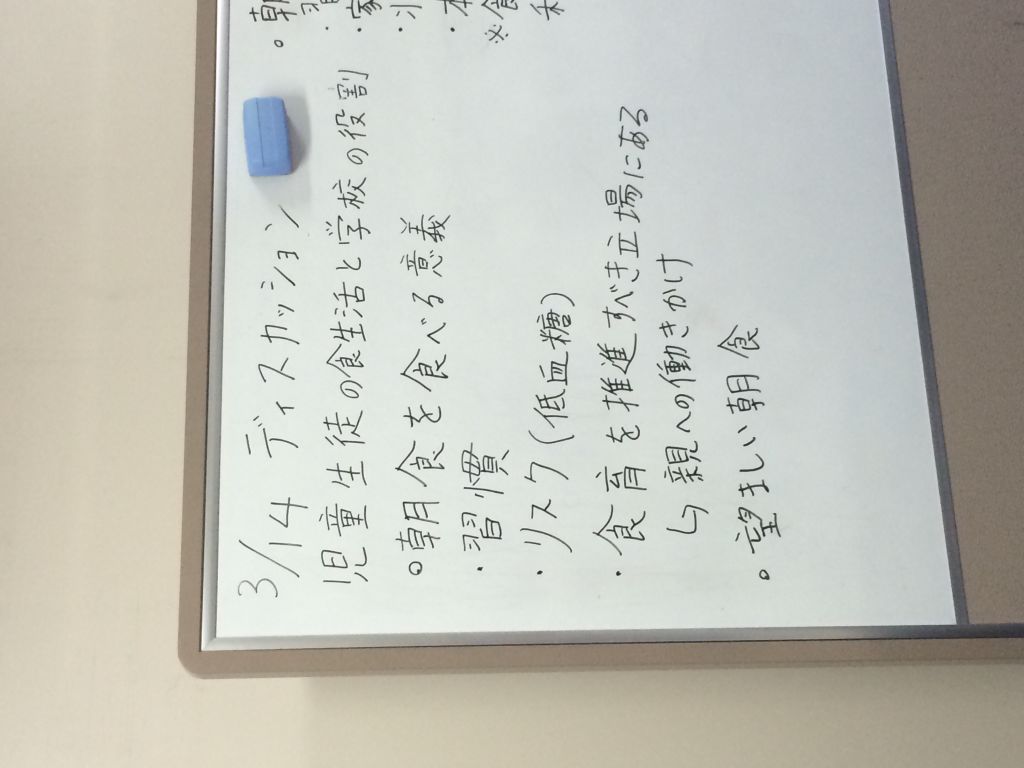 3/14 ディスカッション
児童生徒の食生活と学校の役割
。朝食を食べる意義
・習慣
・リスク(低血糖)
・食育を推進すべき立場にある
↳ 親への働きかけ
。望ましい朝食
。朝
・習
・家
・本
※食